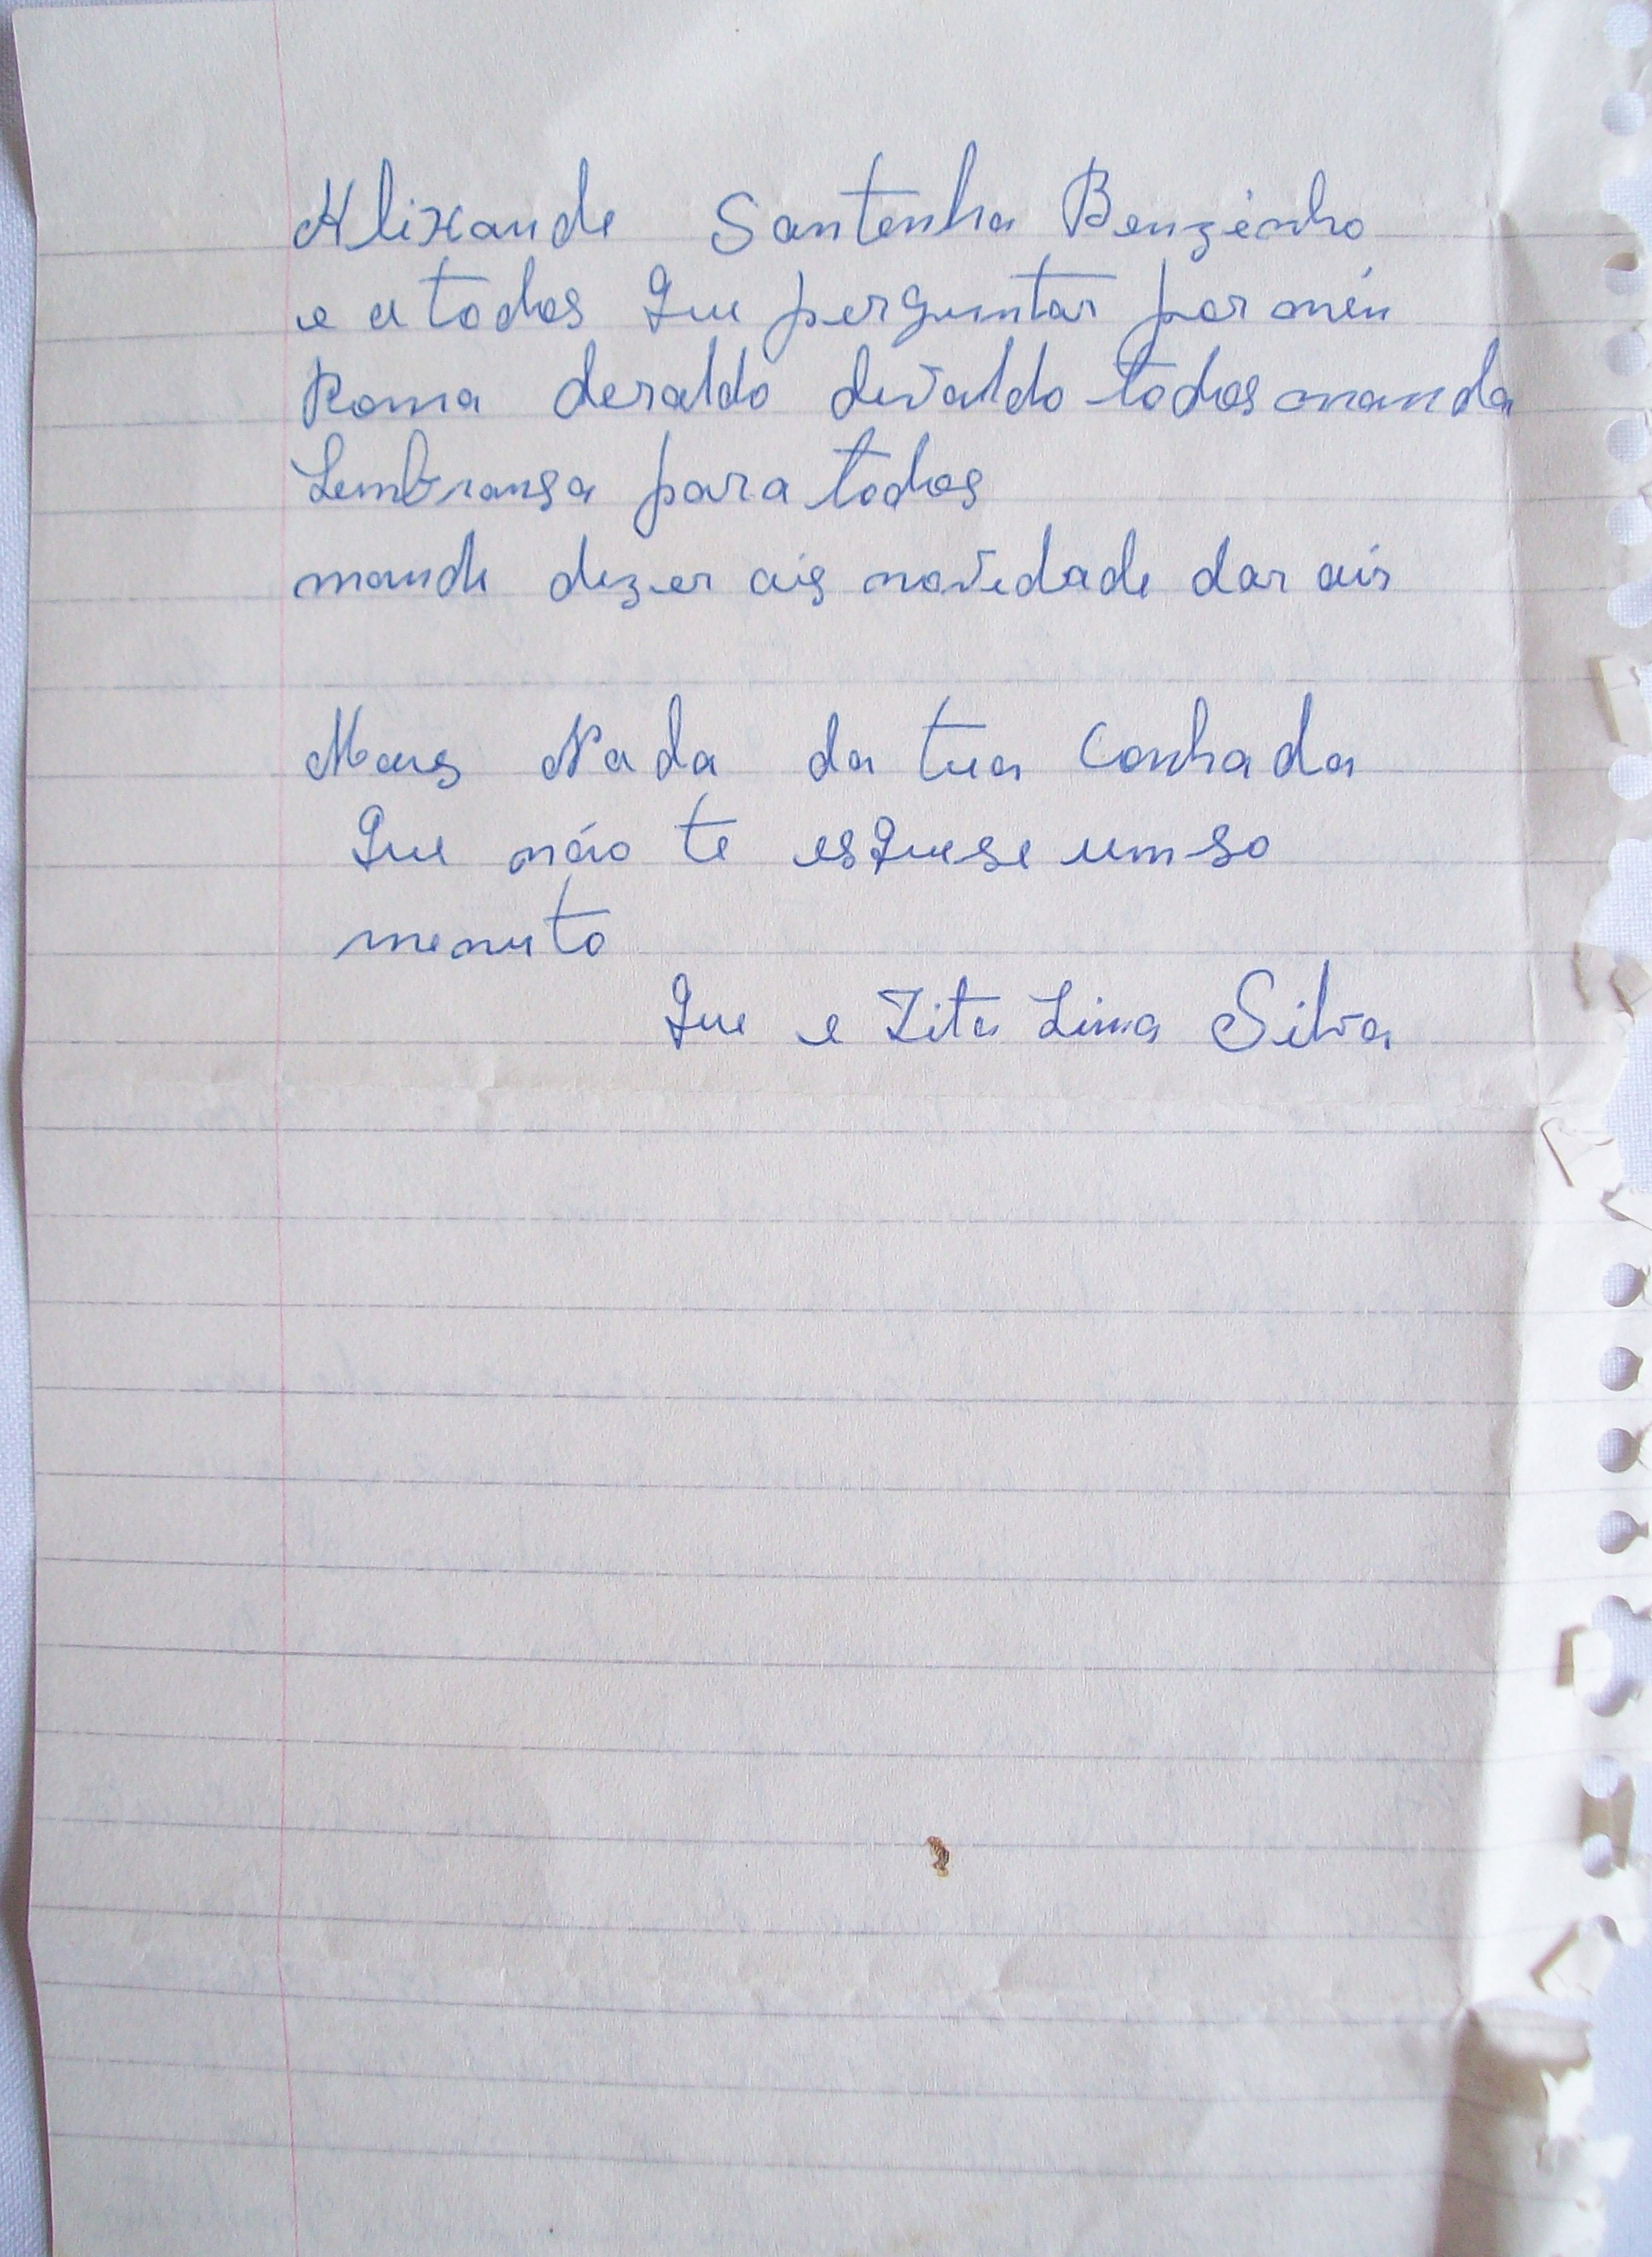 Alixande Santenha Benzinho
e a todos Que perguntar por min
Roma deraldo devaldo todos manda
Lembransa para todos
mande dezer ais novedade dar air
Mais Nada da tua Conhada
Que não te esquese um so
menuto
Que e Zita Lima Silva